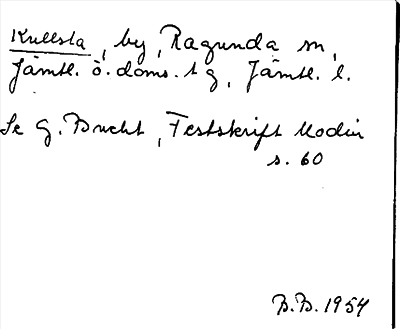 Kullsta, by, Ragunda sn,
Jämtl. ö. doms. tg, Jämtl. l.
Se G. Bucht, Festskrift Modin
s. 60
B.B. 1954